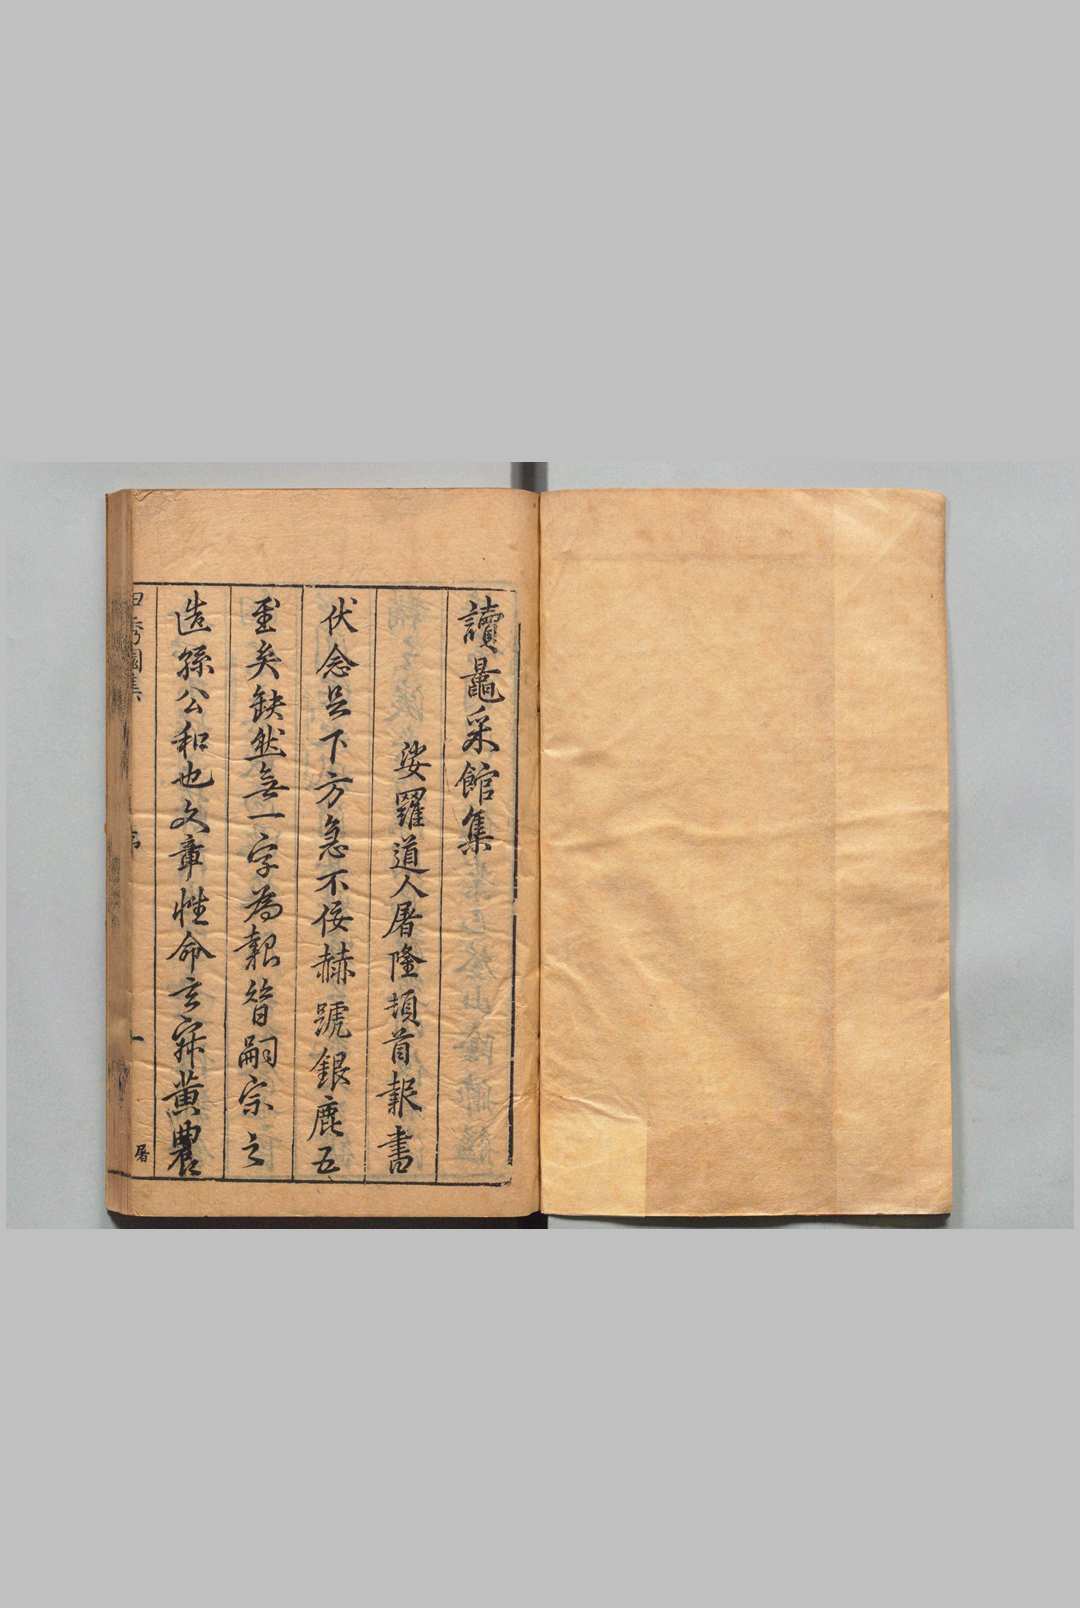 讀鼂采館集
娑羅道人屠隆頓首報書
伏念足下方急不佞赫號銀鹿五
至矣缺然無一字為報昝嗣宗之
造孫公和也文章性命玄寂黄農
序
一
屠